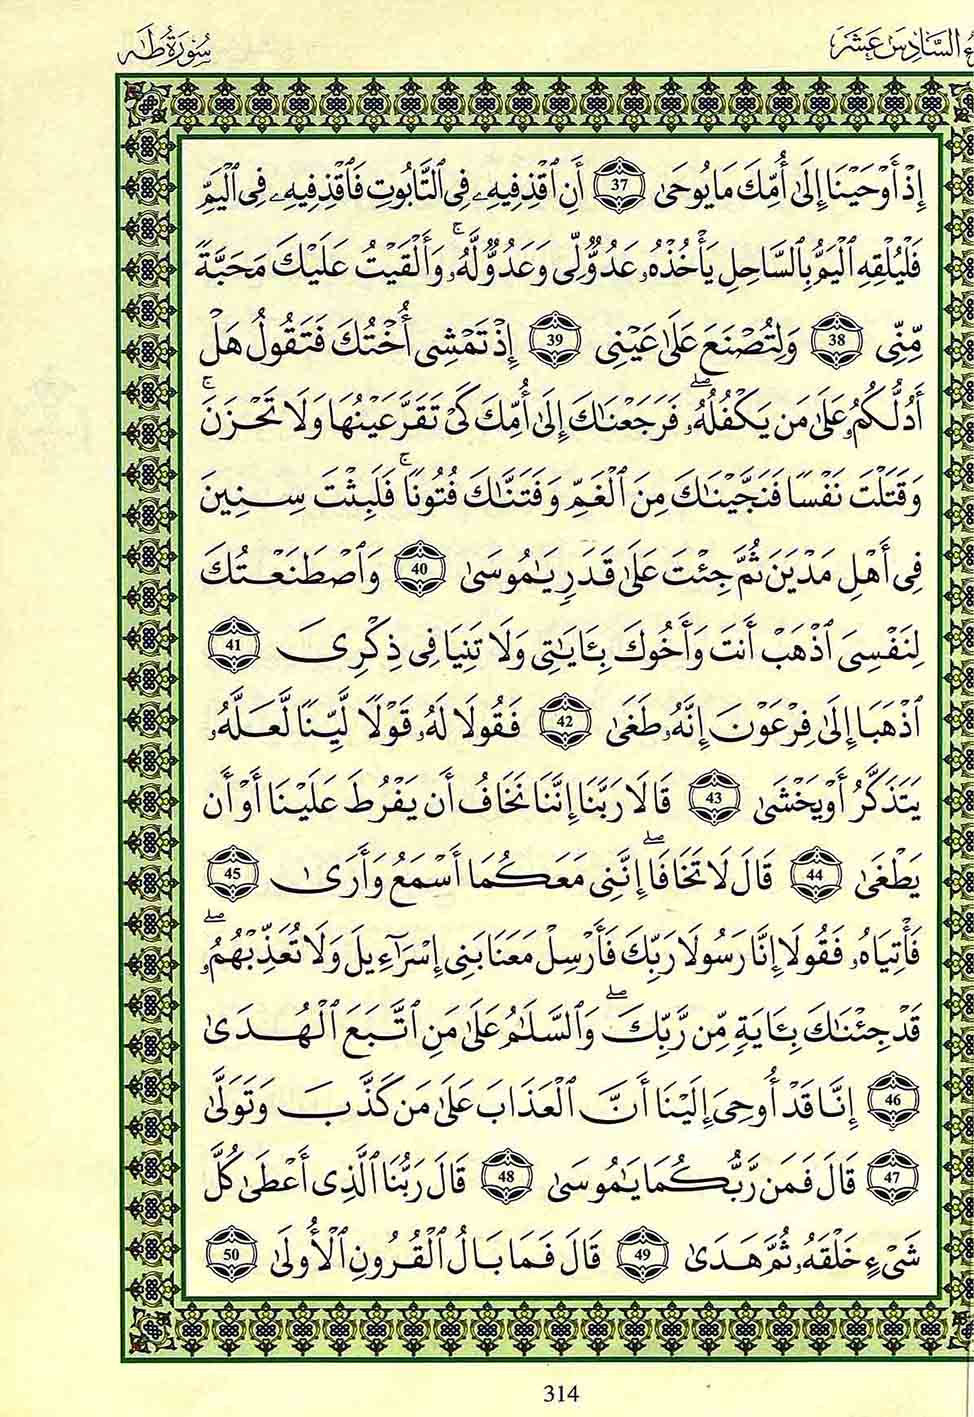 ءُ السَّادِسَ عَشَرَ سُورَةُ طه
إِذْ أَوْحَيْنَا إِلَىٰ أُمِّكَ مَا يُوحَىٰ 37 أَنِ ٱقْذِفِيهِ فِى ٱلتَّابُوتِ فَٱقْذِفِيهِ فِى ٱلْيَمِّ
فَلْيُلْقِهِ ٱلْيَمُّ بِٱلسَّاحِلِ يَأْخُذْهُ عَدُوٌّ لِّى وَعَدُوٌّ لَّهُۥ ۚ وَأَلْقَيْتُ عَلَيْكَ مَحَبَّةً
مِّنِّى 38 وَلِتُصْنَعَ عَلَىٰ عَيْنِى 39 إِذْ تَمْشِى أُخْتُكَ فَتَقُولُ هَلْ
أَدُلُّكُمْ عَلَىٰ مَن يَكْفُلُهُۥ ۖ فَرَجَعْنَاكَ إِلَىٰ أُمِّكَ كَىْ تَقَرَّ عَيْنُهَا وَلَا تَحْزَنَ ۚ
وَقَتَلْتَ نَفْسًا فَنَجَّيْنَاكَ مِنَ ٱلْغَمِّ وَفَتَنَّاكَ فُتُونًا ۚ فَلَبِثْتَ سِنِينَ
فِى أَهْلِ مَدْيَنَ ثُمَّ جِئْتَ عَلَىٰ قَدَرٍ يَامُوسَىٰ 40 وَٱصْطَنَعْتُكَ
لِنَفْسِىَ ٱذْهَبْ أَنتَ وَأَخُوكَ بِـَٔايَاتِى وَلَا تَنِيَا فِى ذِكْرِىَ 41
ٱذْهَبَا إِلَىٰ فِرْعَوْنَ إِنَّهُۥ طَغَىٰ 42 فَقُولَا لَهُۥ قَوْلًا لَّيِّنًا لَّعَلَّهُۥ
يَتَذَكَّرُ أَوْ يَخْشَىٰ 43 قَالَا رَبَّنَا إِنَّنَا نَخَافُ أَن يَفْرُطَ عَلَيْنَا أَوْ أَن
يَطْغَىٰ 44 قَالَ لَا تَخَافَا ۖ إِنَّنِى مَعَكُمَا أَسْمَعُ وَأَرَىٰ 45
فَأْتِيَاهُ فَقُولَا إِنَّا رَسُولَا رَبِّكَ فَأَرْسِلْ مَعَنَا بَنِى إِسْرَآءِيلَ وَلَا تُعَذِّبْهُمْ ۖ
قَدْ جِئْنَاكَ بِـَٔايَةٍ مِّن رَّبِّكَ ۖ وَٱلسَّلَامُ عَلَىٰ مَنِ ٱتَّبَعَ ٱلْهُدَىٰ
46 إِنَّا قَدْ أُوحِىَ إِلَيْنَا أَنَّ ٱلْعَذَابَ عَلَىٰ مَن كَذَّبَ وَتَوَلَّىٰ
47 قَالَ فَمَن رَّبُّكُمَا يَامُوسَىٰ 48 قَالَ رَبُّنَا ٱلَّذِى أَعْطَىٰ كُلَّ
شَىْءٍ خَلْقَهُۥ ثُمَّ هَدَىٰ 49 قَالَ فَمَا بَالُ ٱلْقُرُونِ ٱلْأُولَىٰ 50
314